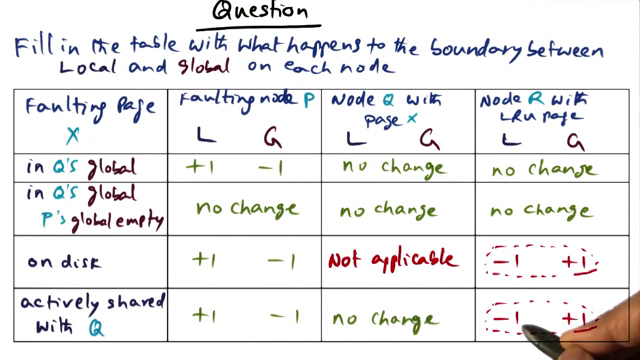 Question
Fill in the table with what happens to the boundary between
Local and global on each node
Faulting Page X
Faulting node P L G
Node Q with page X L G
Node R with LRU page L G
in Q's global +1 -1 no change no change
in Q's global P's global empty no change no change no change
on disk +1 -1 Not applicable -1 +1
actively shared with Q +1 -1 no change -1 +1